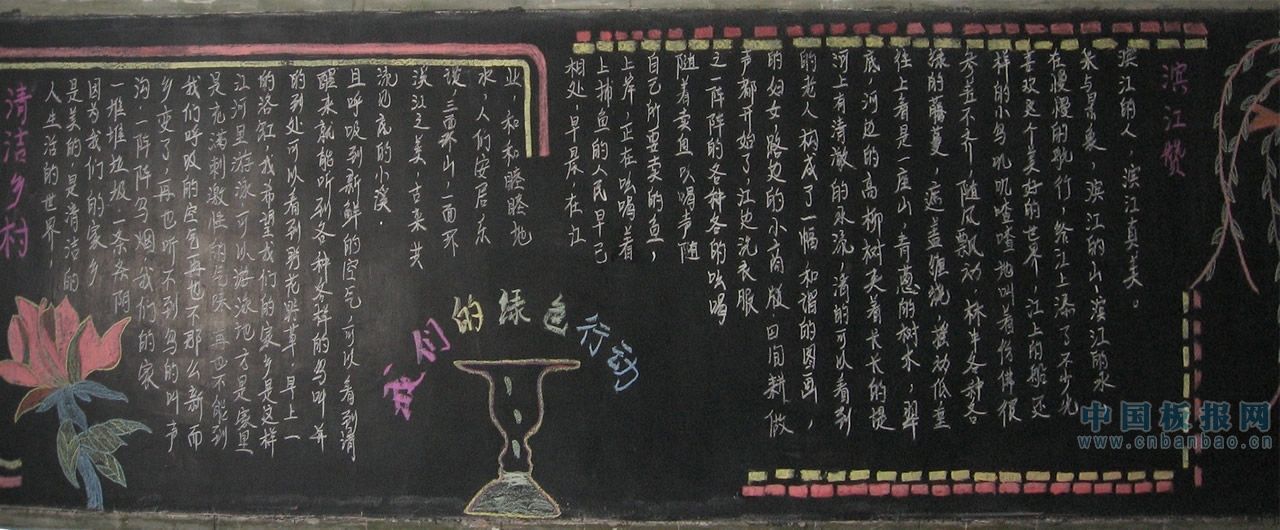 滨江赞
滨江的人,滨江真美。
滨江的山,滨江的水
在慢慢的航行,给江上添了不少光
喜欢这个美好的世界,江上的船还
样的小鸟叽叽喳喳地叫着仿佛很
参差不齐,随风飘动,林中各种各
绿的藤蔓,遮盖缠绕,摇动低垂
往上看是一座山,青葱的树木,翠
底,河边的高柳树夹着长长的堤
河上有清澈的水流,清的可以看到
的老人构成了一幅和谐的图画,
的妇女,路
声都开始了江边洗衣服
之一阵阵的各种各的吆喝
随着卖鱼吆喝声随
自己所要卖的鱼,
上岸,正在吆喝着
上捕鱼的人民早已
相处早晨,在江
业,和和睦睦地
水,人们安居乐
谈三面环山,一面环
浅江之美,
浇见底的小溪.
且呼吸到新鲜的空气,可以看到清
醒来就能听到各种各样的鸟叫,并
的到处可以看到
我希望我们的家乡是这样
江河里游泳,可以游泳地方是家里
是充满刺激性的气味,再也不能到
我们呼吸的空气再也不那么新,而
乡变了,再也听不到鸟的叫声
沟,一阵阵乌烟,我们的家
一堆堆垃圾,一条条阴
因为我们的家乡
是美的,是清洁的
人生活的世界,
清洁乡村
我们的绿色行动
中国板报网
www.cnbanbao.cn